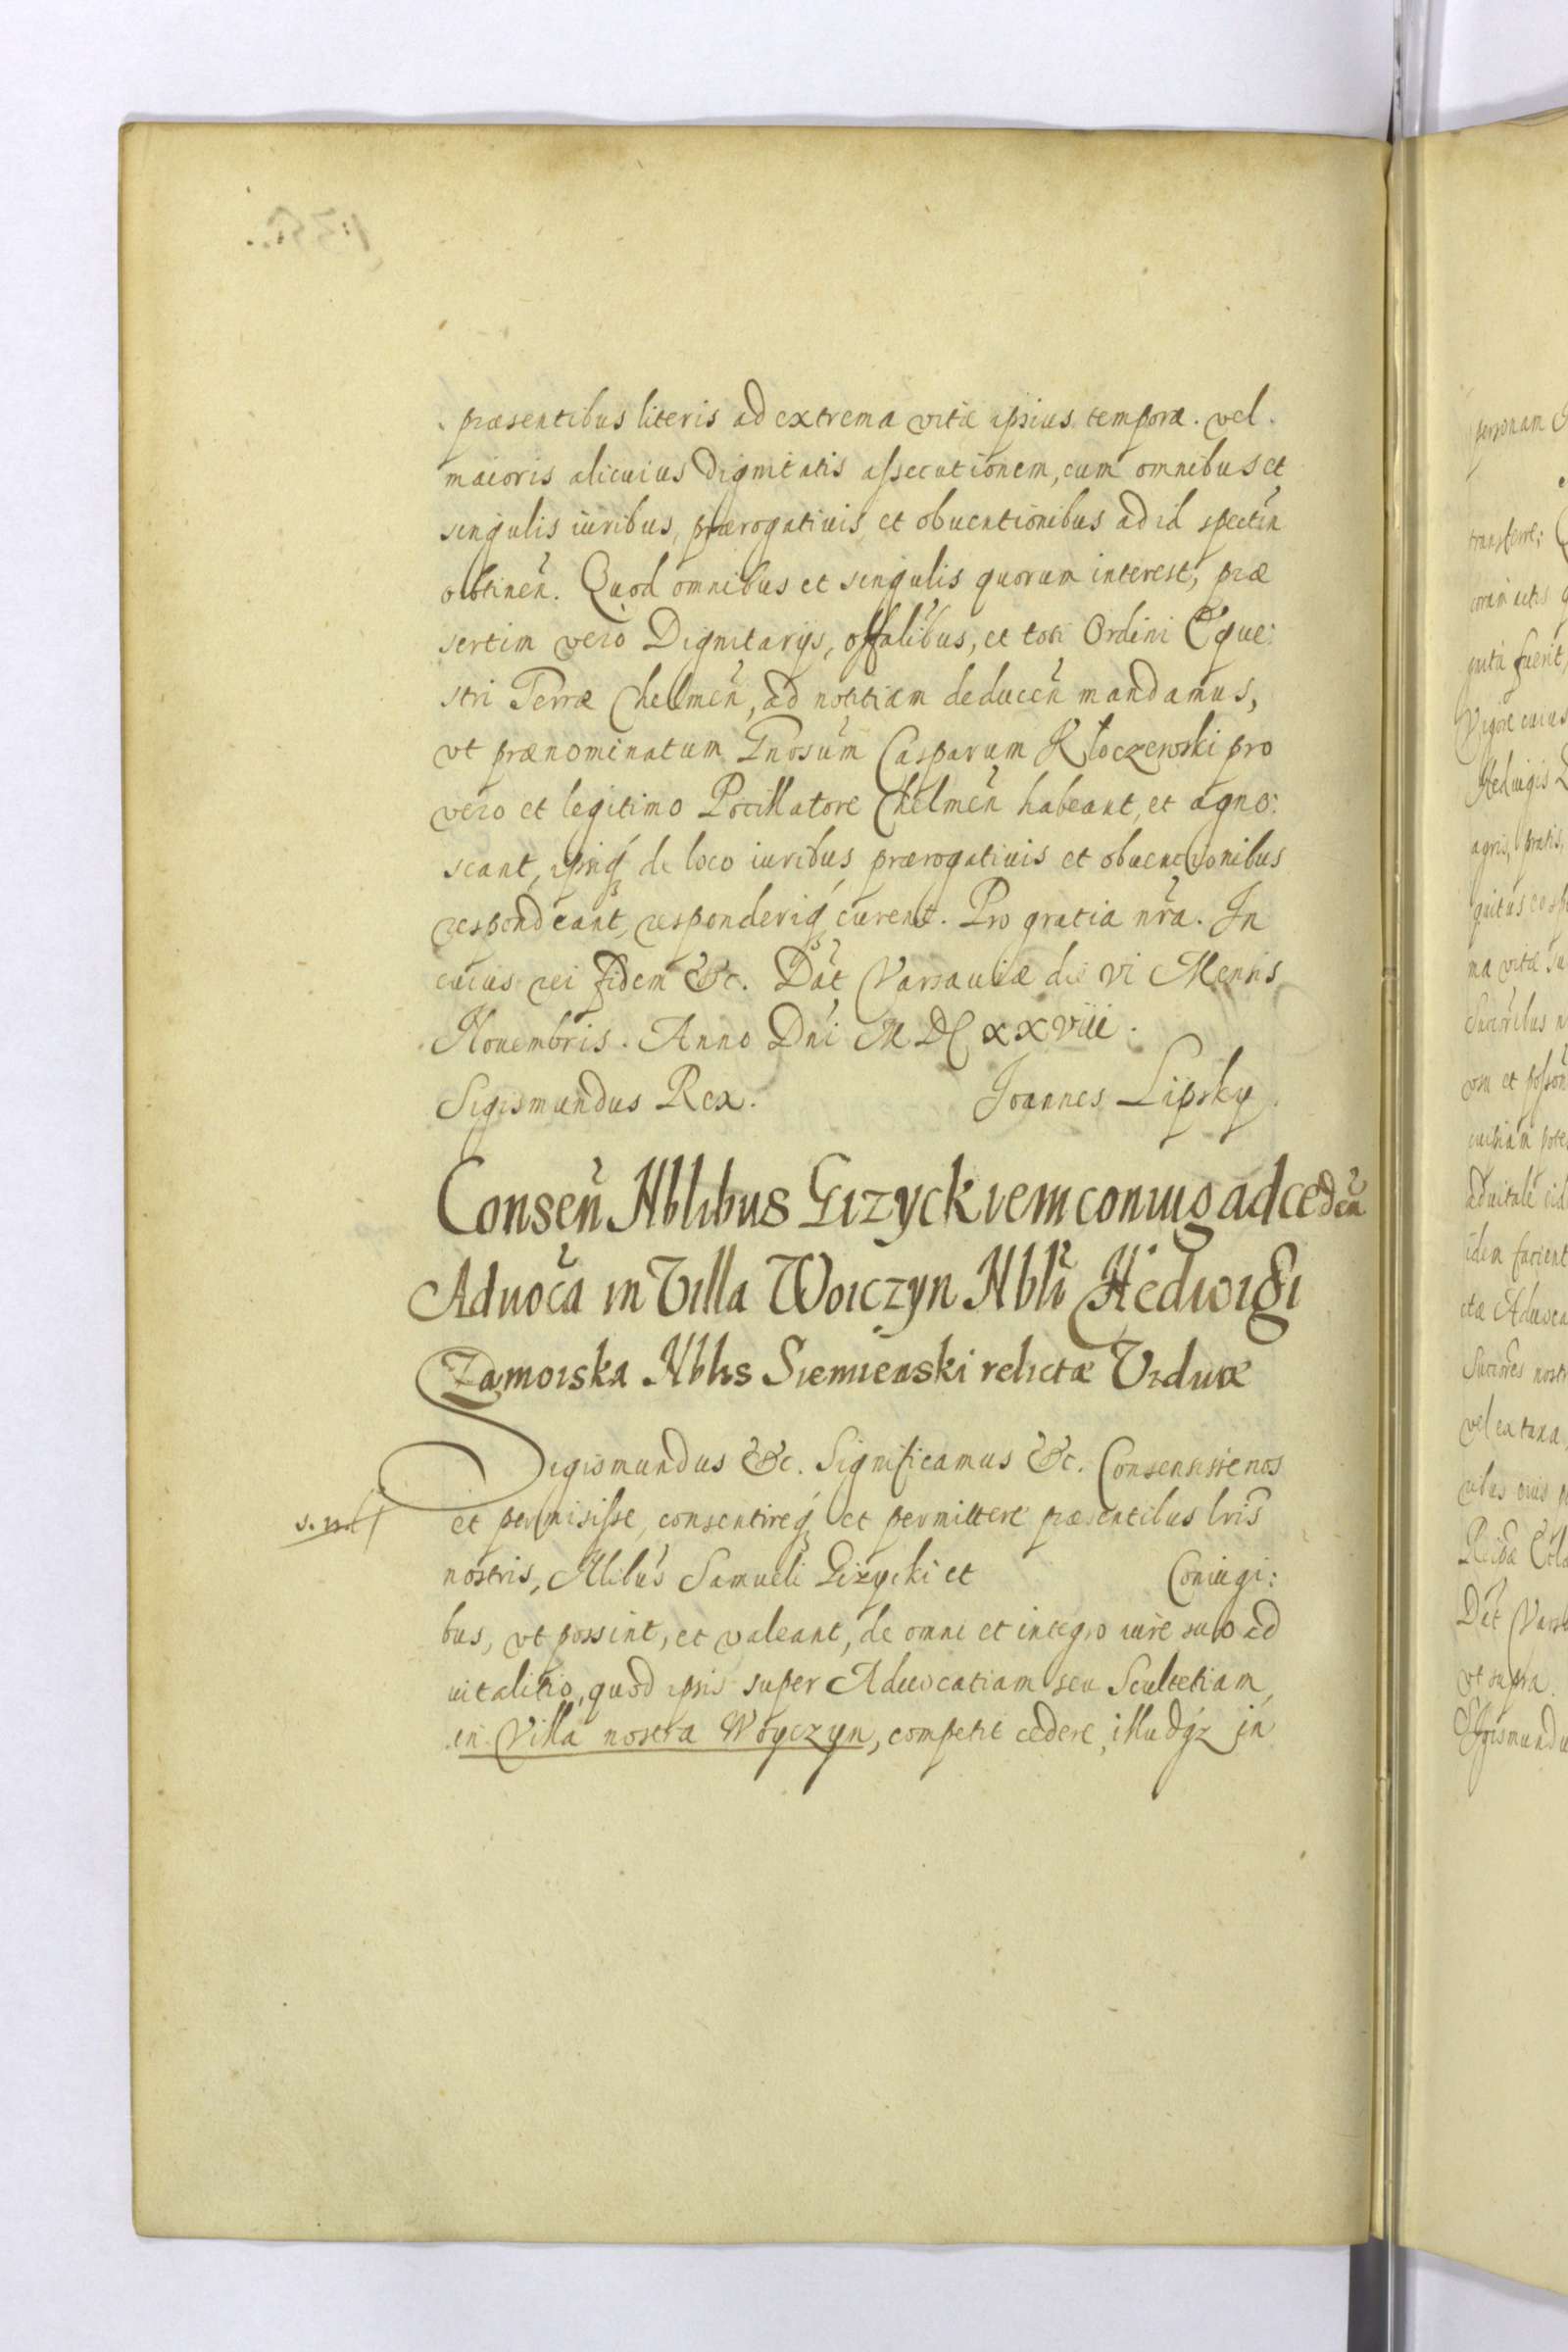 præsentibus literis ad extrema vitæ ipsius tempora. vel
maioris alicuius Dignitatis assecutionem, cum omnibus et
singulis iuribus, prærogatiuis et obuentionibus ad id spectñ
obtineñ. Quod omnibus et singulis quorum interest, præ
sertim vero Dignitarijs, offalibus, et toti Ordini Eque:
stri Terræ Chelmeñ, ad notitiam deduceñ mandamus,
vt prænominatum Gnosum Casparum Kłoczewski pro
vero et legitimo Pocillatore Chelmeñ habeant, et agno:
scant, ipsiq́ de loco iuribus prærogatiuis et obuentionibus
respondeant, responderiq́ curent. Pro gratia nra. In
cuius rei fidem &c. Dat Varsauiæ die vi Mensis
Nouembris. Anno Dni M DC xxviii.
Sigismundus Rex. Joannes Lipsky.
Conseñ Nblibus Gizyckiem coniug ad cedeñ
Aduoca in Villa Woiczyn Nbli Hedwigi
Zamoiska Nblis Siemienski relictæ Viduæ
Sigismundus &c. Significamus &c. Consensisse nos
et permisisse, consentireq́ et permittere præsentibus lris
nostris, Nlibus Samueli Gizycki et Coniugi:
bus, vt possint, et valeant, de omni et integro iure suo ad
uitalitio, quod ipsis super Aduocatiam seu Scultetiam
in Villa nostra Woyczyn, competit cedere, illudq́z in
personam
transferre;
coram actis
fuerit,
Vigore cuius
Heduigis
agris, pratis,
ma vitæ
idem facient
vel ex tuna
Dat Vars
vt supra.
Sigismundu